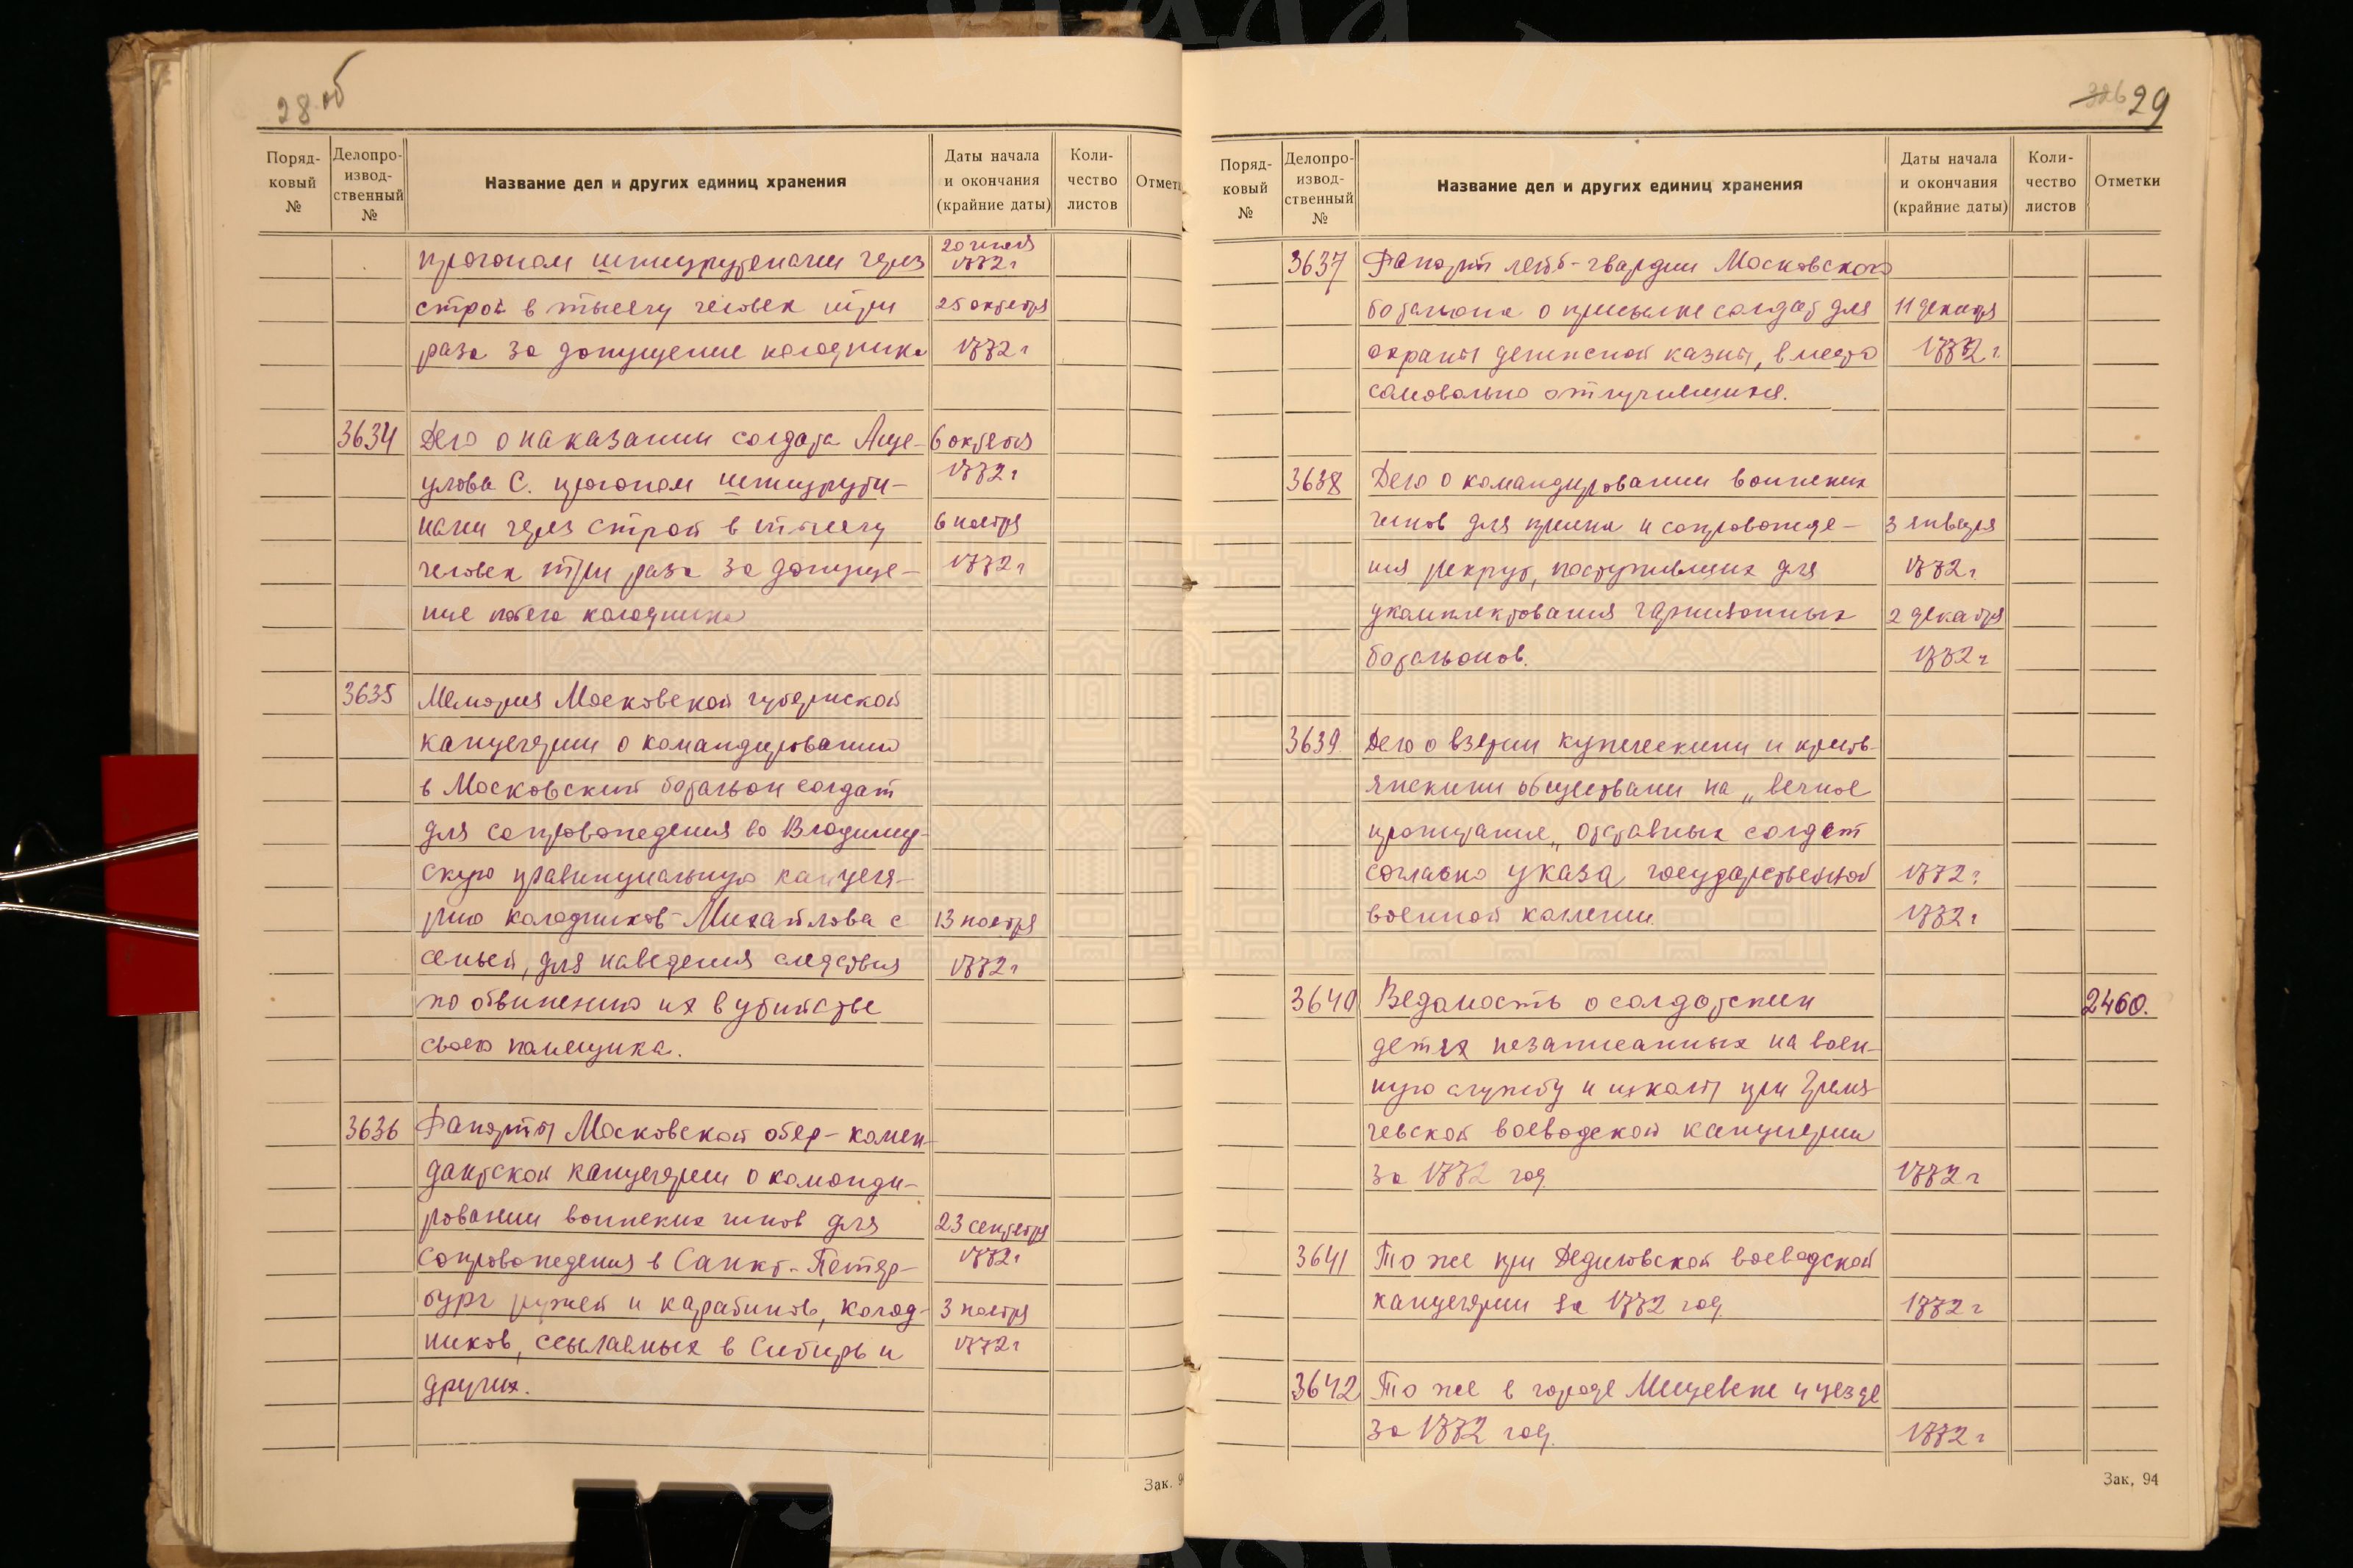 28 об
Поряд-
ковый
№
Делопро-
извод-
ственный
№
Название дел и других единиц хранения
Даты начала
и окончания
(крайние даты)
Коли-
чество
листов
Отмет
прогоном шпицрутенами через 20 июля
1772 г
строй в тысячу человек три 25 октября
раза за допущение колодника 1772 г
3634 Дело о наказании солдата Аще- 6 октября
улова С. прогоном шпицруте- 1772 г
нами через строй в тысячу 6 ноября
человек три раза за допуще- 1772 г
ние побега колодника
3635 Мемория Московской губернской
канцелярии о командировании
в Московский батальон солдат
для сопровождения во Владимир-
скую провинциальную канцеля-
рию колодников Михайлова с 13 ноября
семьей, для наведения следствия 1772 г
по обвинению их в убийстве
своего помещика.
3636 Рапорты Московской обер-комен-
дантской канцелярии о команди-
ровании воинских чинов для 23 сентября
сопровождения в Санкт-Петер- 1772 г
бург ружей и карабинов, колод- 3 ноября
ников, ссылаемых в Сибирь и 1772 г
других.
Зак. 9
326 29
Поряд-
ковый
№
Делопро-
извод-
ственный
№
Название дел и других единиц хранения
Даты начала
и окончания
(крайние даты)
Коли-
чество
листов
Отметки
3637 Рапорт лейб-гвардии Московского
батальона о присылке солдат для 11 декабря
охраны денежной казны, вместо 1772 г.
самовольно отлучившихся.
3638 Дело о командировании воинских
чинов для приема и сопровожде- 3 января
ния рекрут, поступивших для 1772 г.
укомплектования гарнизонных 2 декабря
батальонов. 1772 г
3639 Дело о взятии купеческими и кресть-
янскими обществами на „вечное
пропитание„ отставных солдат
согласно указа государственной 1772 г.
военной коллегии. 1772 г
3640 Ведомость о солдатских 2460.
детях незаписанных на воен-
ную службу и школы при Гремя-
чевской воеводской канцелярии
за 1772 год. 1772 г
3641 То же при Дедиловской воеводской
канцелярии за 1772 год 1772 г
3642 То же в городе Мещевске и уезде
за 1772 год. 1772 г
Зак, 94